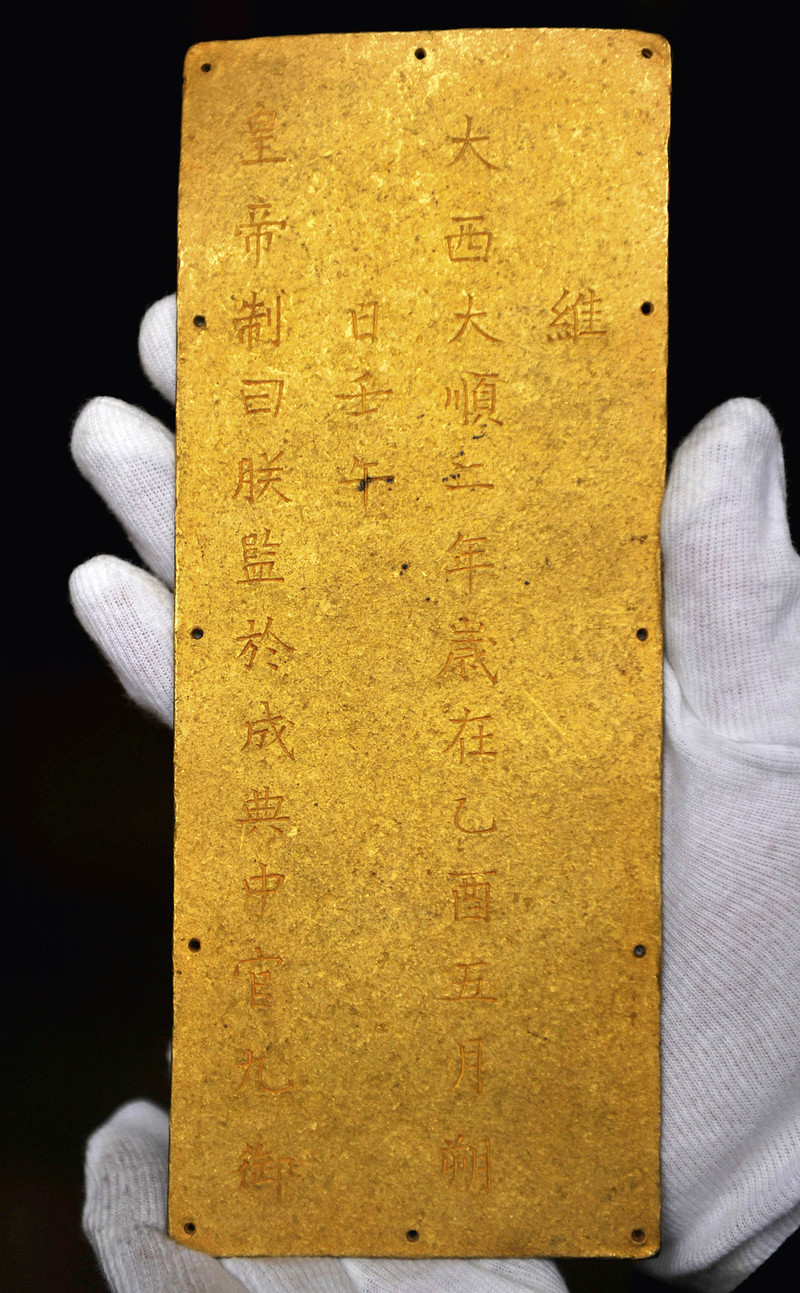 維
大西大順二年歲在乙酉五月朔
日壬午
皇帝制曰朕監於成典中宮九御